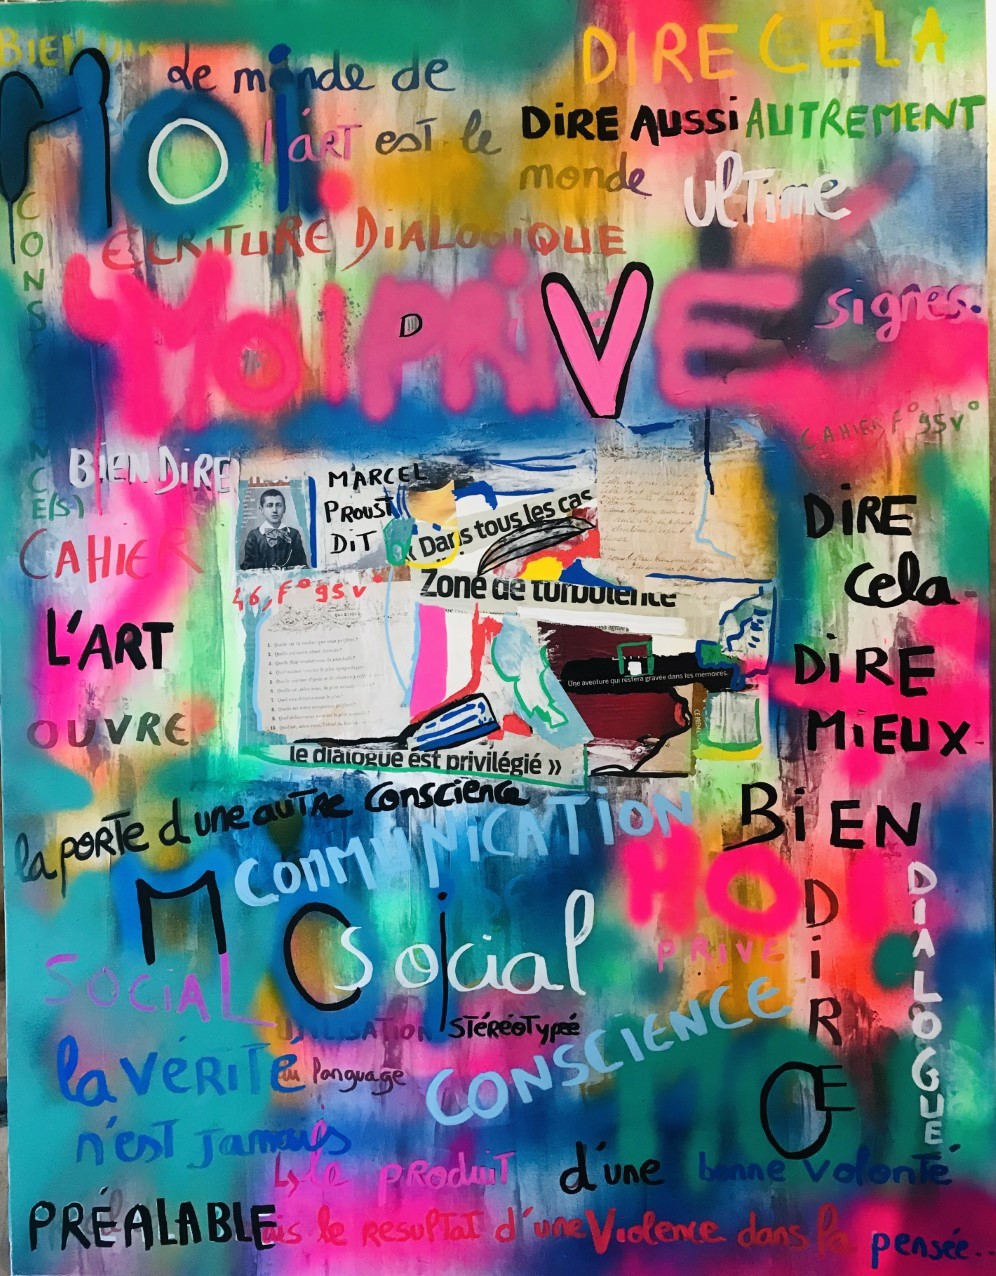 BIEN DIRE
MOI
Le monde de
l'ART est le
monde ULTIME
signes.
DIRE CELA
DIRE AUSSI AUTREMENT
ECRITURE DIALOGIQUE
CONSCIENCE(S)
MOI PRIVE
CAHIER F° 95 V°
BIEN DIRE
CAHIER
46, F° 95 V°
MARCEL
PROUST
DIT
« Dans tous les cas
Zone de turbulence
Une aventure qui restera gravée dans les mémoires.
le dialogue est privilégié »
L'ART
OUVRE
la PORTE d'une AUTRE CONSCIENCE
DIRE
Cela
DIRE
MIEUX
BIEN
DIRE
COMMUNICATION
MOI
Social
SOCIAL
MOI
PRIVE
DIALOGUE
UTILISATION STÉRÉOTYPÉE
du langage
CONSCIENCE
CE
la VÉRITÉ
n'est JAMAIS
↳ le PRODUIT d'une bonne volonté
PRÉALABLE
mais le RESULTAT d'une Violence dans la pensée...